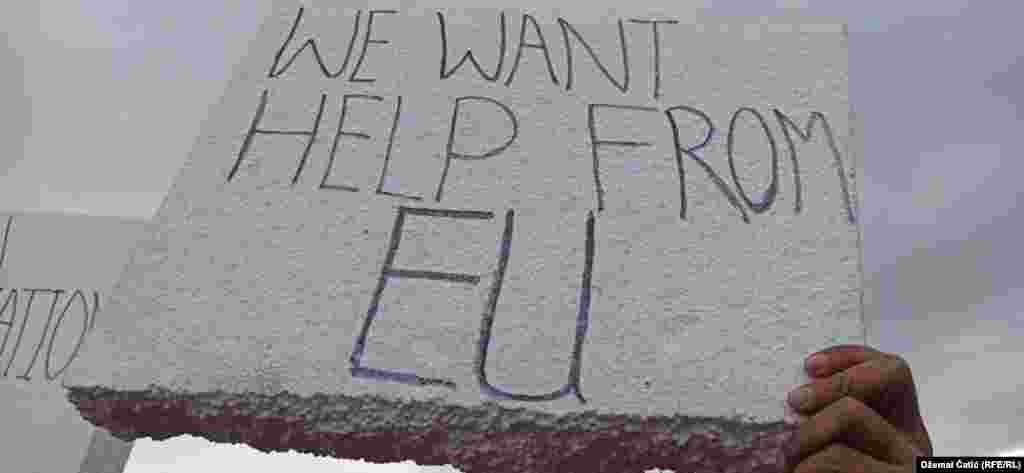 WE WANT
HELP FROM
EU
TATION
Džemal Ćatić (RFE/RL)